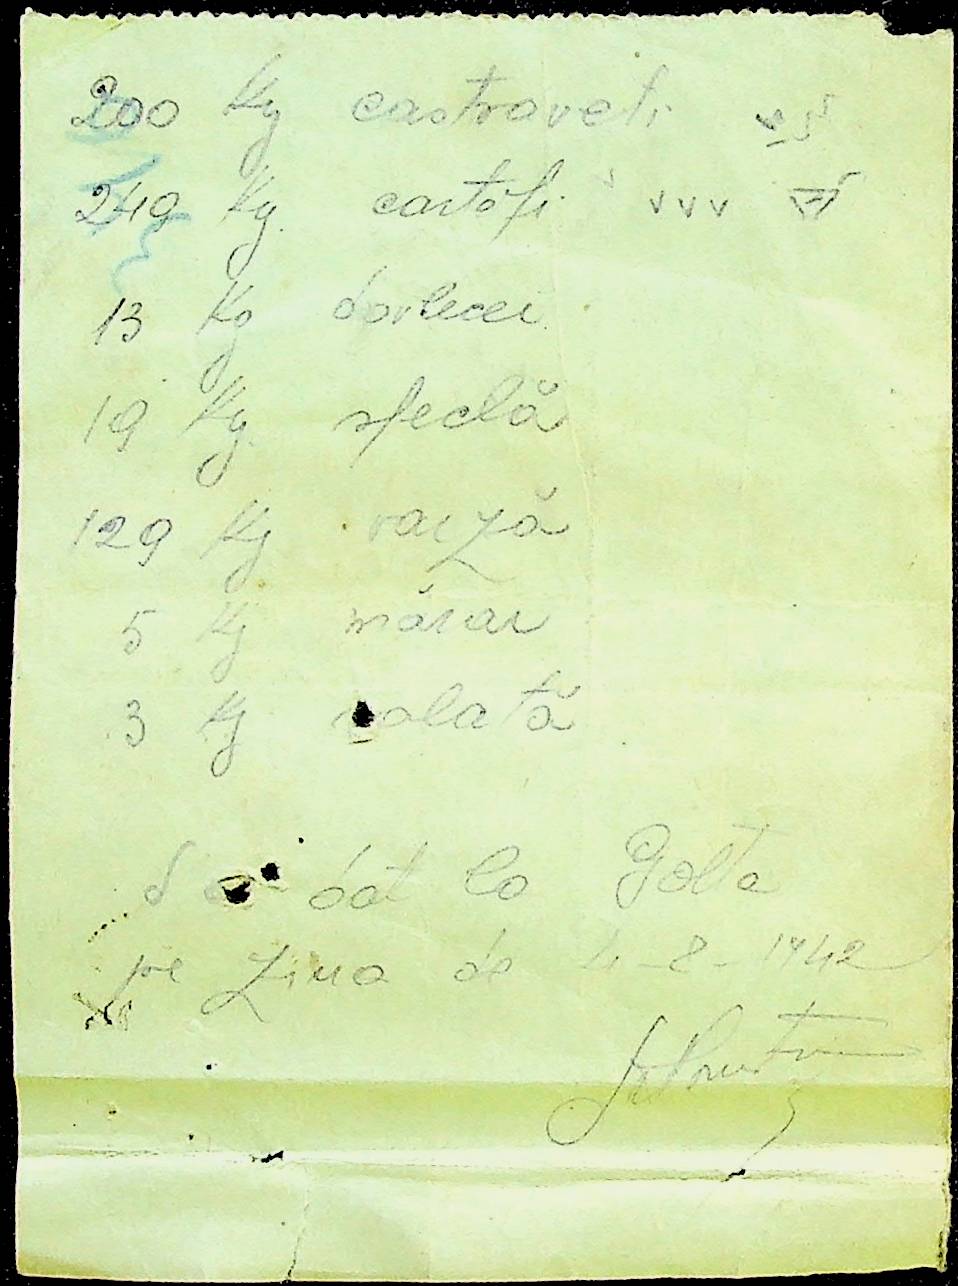 200 Kg castraveti
249 Kg. cartofi v v v
13 Kg dovlecei
19 Kg. sfeclă
129 Kg varză
5 Kg mărar
3 Kg salată
S a dat la Golta
pe ziua de 4-8-1942